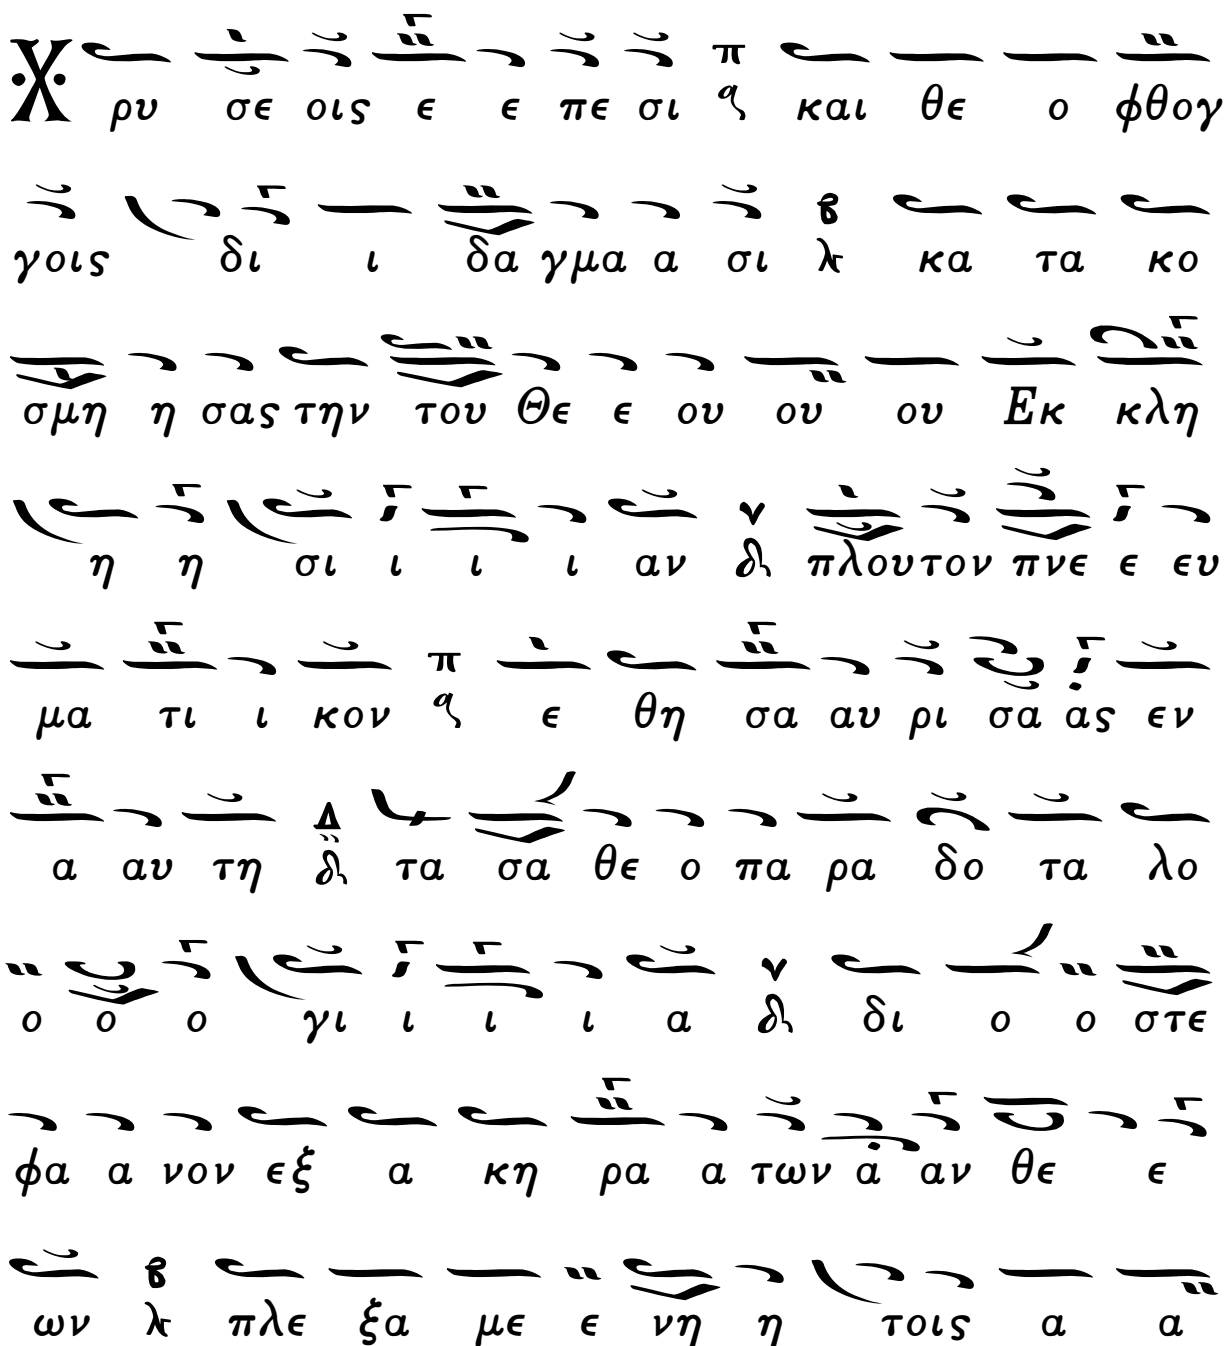 Χ ρυ σε οις ε ε πε σι π ϥ και θε ο φθογ
γοις δι ι δα γμα α σι κα τα κο
σμη η σας την του Θε ε ου ου ου Εκ κλη
η η σι ι ι ι αν πλου τον πνε ε ευ
μα τι ι κον π ϥ ε θη σα αυ ρι σα ας εν
α αυ τη Δ τα σα θε ο πα ρα δο τα λο
ο ο ο γι ι ι ι α δι ο ο στε
φα α νον εξ α κη ρα α των α αν θε ε
ων πλε ξα με ε νη η τοις α α